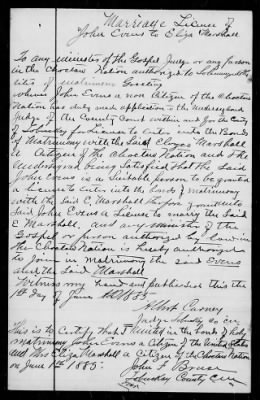 Marriage License of
John Evans to Eliza Marshall
To any minister of the Gospel Judge or any person
in the Choctaw Nation authorized to Solemnize the
rites of matrimony Greeting
whereas John Evans a non Citizen of the Choctaw
Nation has duly made application to the undersigned
Judge of the County Court within and for the County
of for License to enter into the Bonds
of Matrimony with the said Marshall
a Citizen of the Choctaw Nation and the
undersigned being satisfied that the said
John Evans is a Suitable person to be granted
a License to enter into the bonds of matrimony
with the said E. Marshall therefore grant unto
said John Evans a License to marry the said
E Marshall, and any minister of the
Gospel or person authorized by law in
the Choctaw Nation is hereby authorized
to Join in Matrimony the said Evans
and the said Marshall
Witness my hand and this the
1st Day of June 1885
Albert Carney
Judge Co
This is to Certify that I united in the bonds of holy
matrimony John Evans a Citizen of the United States
and Mrs Eliza Marshall a Citizen of the Choctaw Nation
on June 1st 1885.
John F.
County